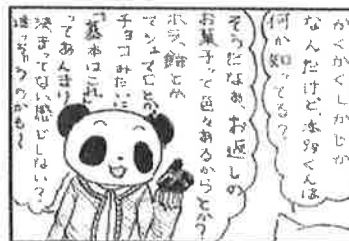 かくかくしかじか
なんだけど本羽くんは
何か知ってる?
そうだなぁ、お返しの
お菓子って色々あるからとか?
ホラ、飴とか
マシュマロとか
チョコみたいに
「基本はこれ」
ってあんまり
決まってない感じしない?
迷っちゃうのかも〜